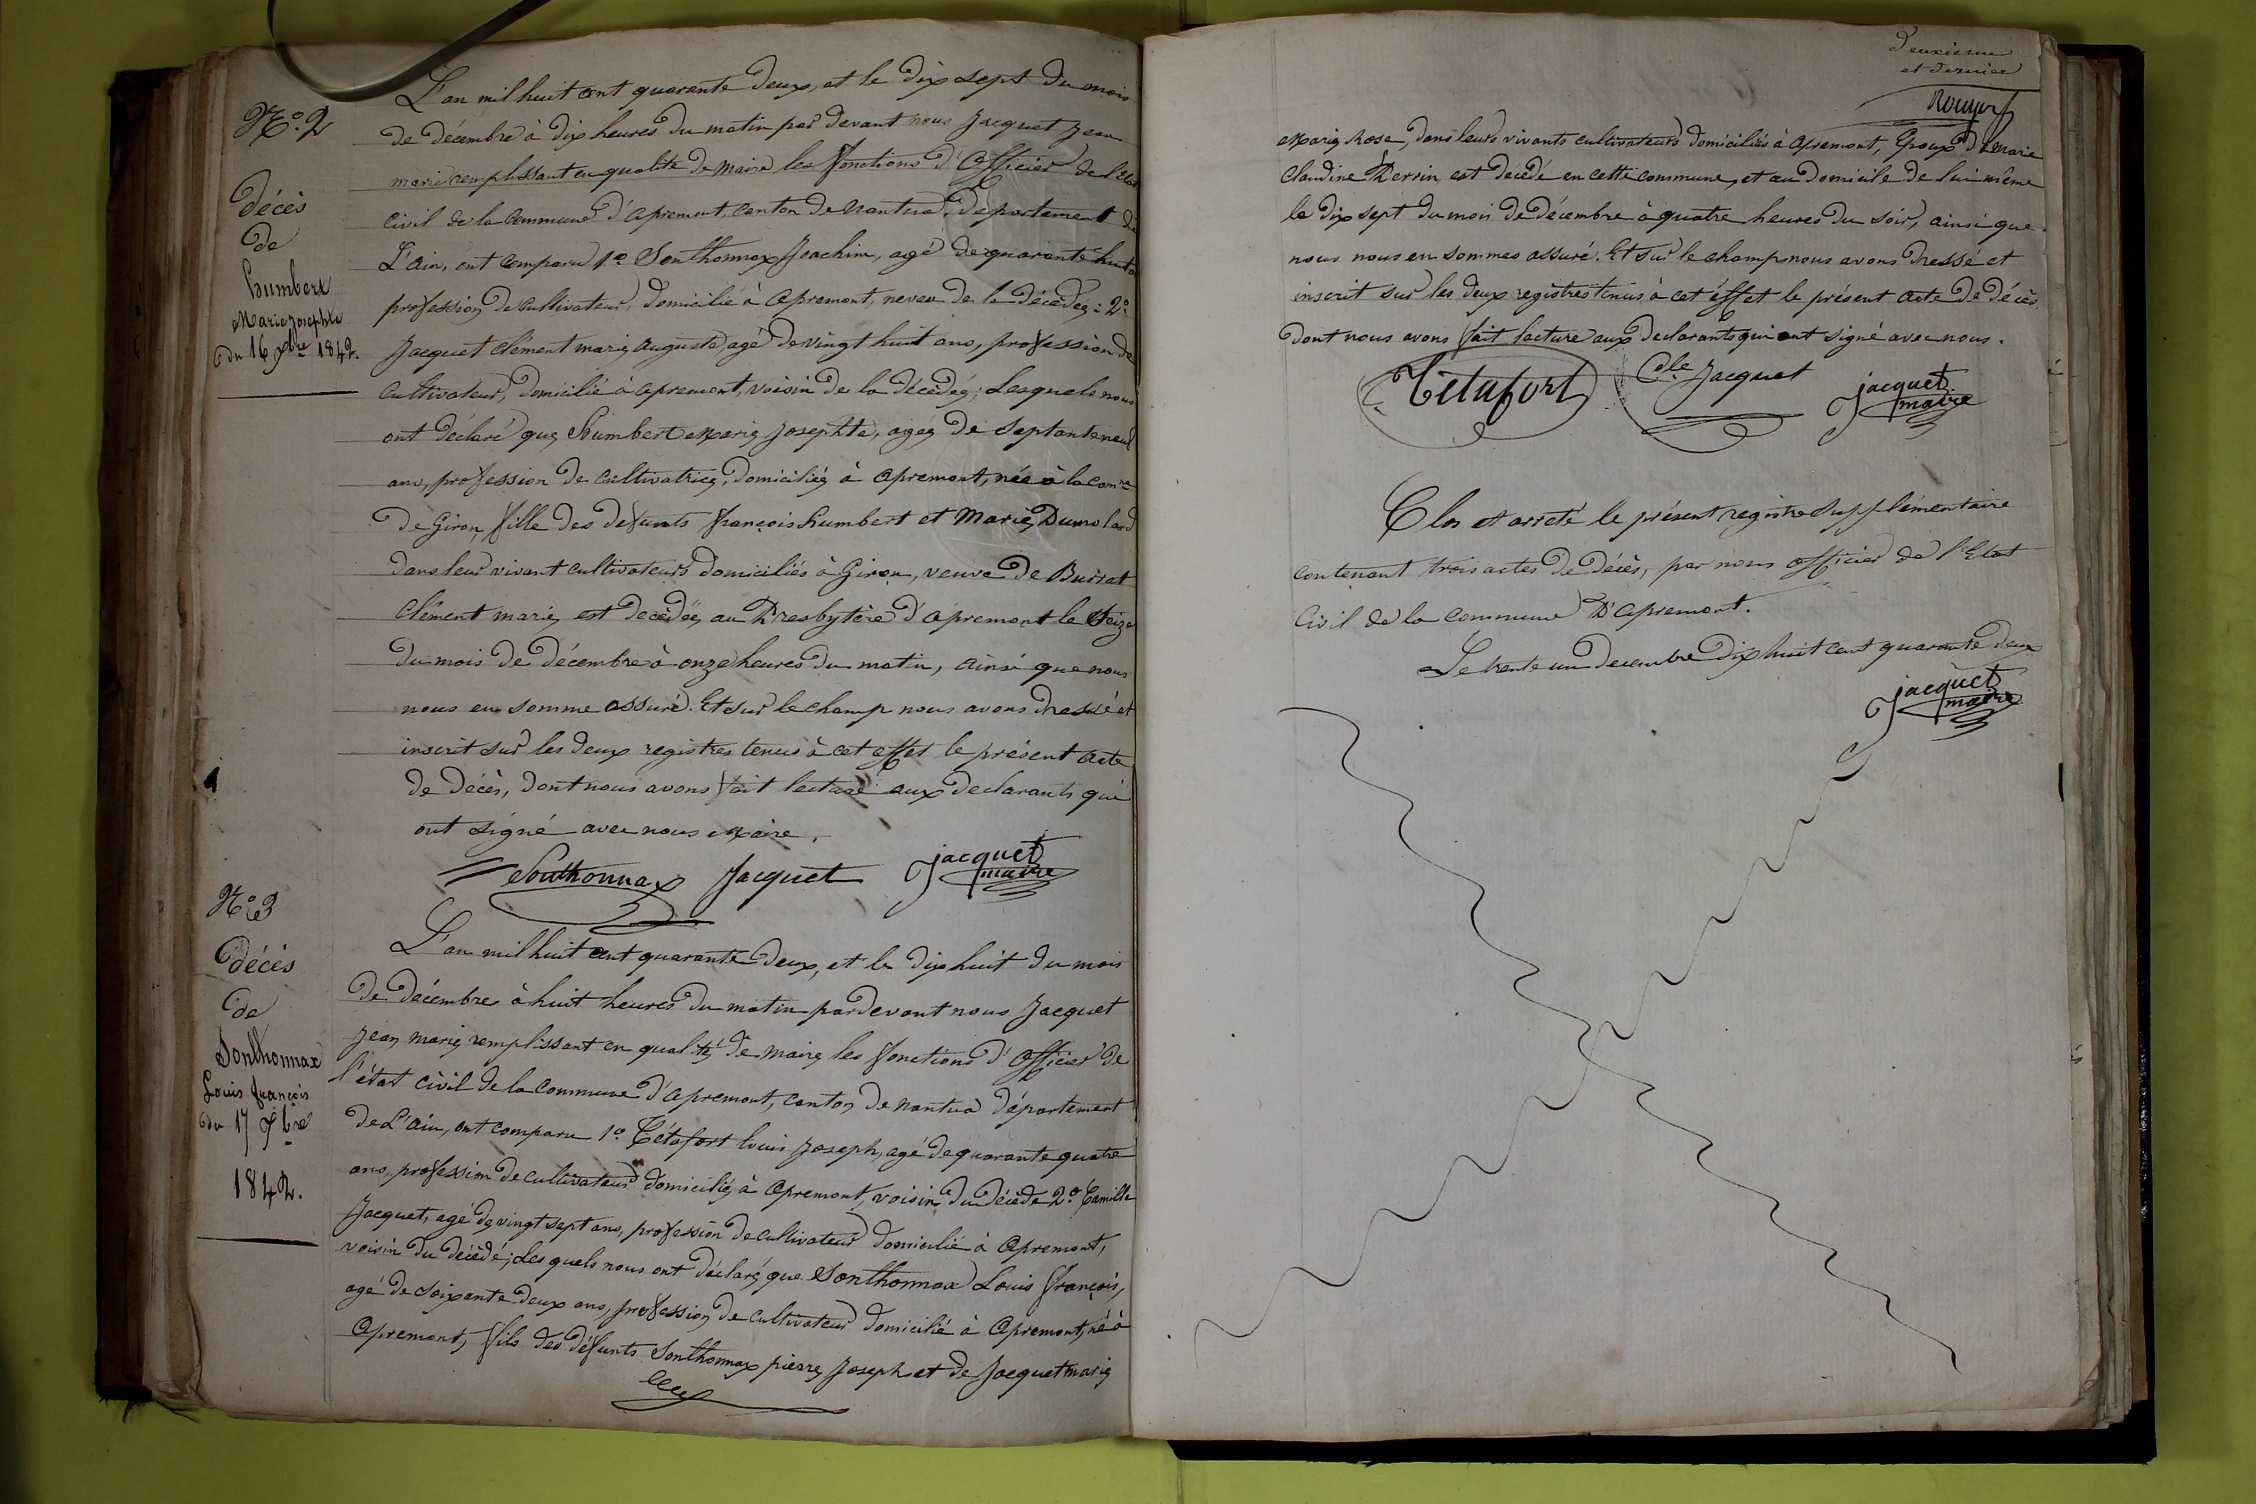 N.o 2
décès
de
humbert
Marie Josephte
du 16 Xbre 1842.
L'an mil huit cent quarante deux, et le dix sept du mois
de décembre à dix heures du matin par devant nous Jacquet Jean
marie remplissant en qualité de Maire les fonctions d'Officier de l'état
civil de la commune d'apremont canton de nantua, département de
L'ain, ont comparu 1.o Sonthonnax Joachim, agé de quarante huit ans
profession de cultivateur, domicilié à apremont, neveu de la décèdée: 2.o
Jacquet Clément marie auguste, agé de vingt huit ans, profession de
cultivateur, domicilié à apremont, voisin de la décèdée; Lesquels nous
ont déclaré que humbert Marie Josephte, agée de Septante neuf
ans, profession de cultivatrice, domiciliée à apremont, née à la Comne
de Giron, fille des defunts françois humbert et Marie Dumolard
dans leur vivant cultivateurs domiciliés à Giron, veuve de Burrat
Clément marie, est decèdée, au Presbytère d'apremont le Seize
du mois de décembre à onze heures du matin, ainsi que nous
nous en somme assuré. Et sur le champ nous avons dressé et
inscrit sur les deux registres tenus à cet effet le présent acte
de décès, dont nous avons fait lecture aux declarants qui
ont signé avec nous Maire.
Sonthonnax Jacquet jacquet
maire
N.o 3
décès
de
Sonthonnax
Louis françois
du 17 Xbre
1842.
L'an mil huit cent quarante deux, et le dix huit du mois
de décembre à huit heures du matin pardevant nous Jacquet
Jean marie remplissant en qualité de maire les fonctions d'Officier de
l'état civil de la commune d'apremont, canton de nantua département
de L'ain, ont comparu 1.o Tétafort louis Joseph, agé de quarante quatre
ans, profession de cultivateur domicilié à apremont, voisin du décèdé 2.o Camille
Jacquet, agé de vingt sept ans, profession de cultivateur domicilié à apremont,
voisin du décèdé; Lesquels nous ont déclaré que Sonthonnax Louis françois,
agé de soixante deux ans, profession de cultivateur domicilié à apremont, né à
apremont, fils des défunts Sonthonnax pierre Joseph et de Jacquet marie
deuxieme
et dernier
Marie Rose, dans leurs vivants cultivateurs domiciliés à apremont, Epoux de Marie
Claudine Perrin est décèdé en cette commune, et au domicile de lui même
le dix sept du mois de décembre à quatre heures du soir, ainsi que
nous nous en sommes assuré. Et sur le champ nous avons dressé et
inscrit sur les deux registres tenus à cet éffet le présent acte de décès
dont nous avons fait lecture aux declarants qui ont signé avec nous.
Tétafort Cle Jacquet jacquet
maire
Clos et arreté le présent registre Supplémentaire
contenant trois actes de décès, par nous officier de l'Etat
Civil de la commune D'apremont.
Le trente un decembre dix huit cent quarante deux
jacquet
maire